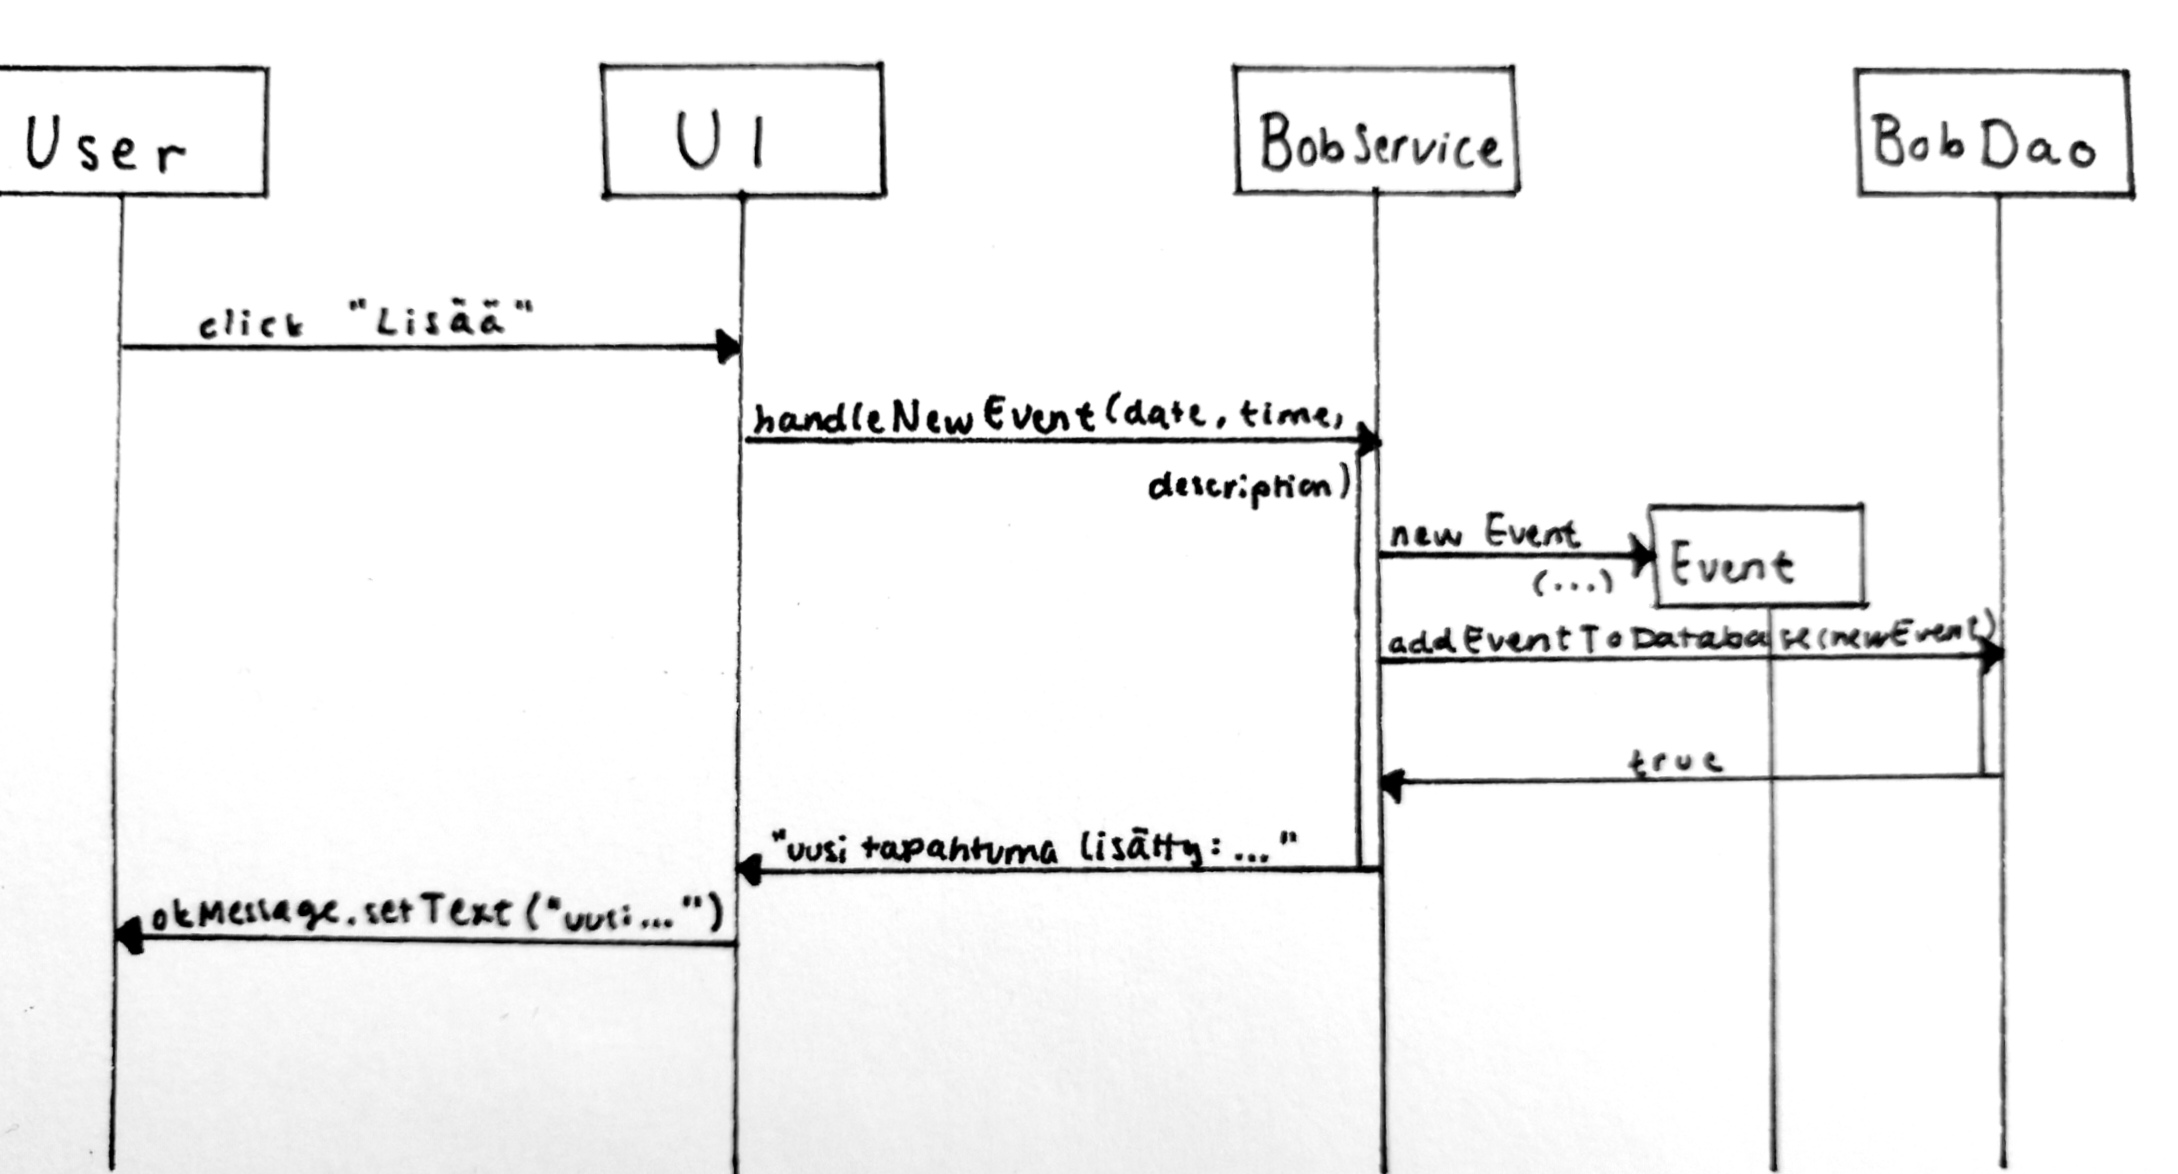 User
UI
BobService
BobDao
click "Lisää"
handleNewEvent(date, time,
description)
new Event
(...)
Event
addEventToDatabase(newEvent)
true
"uusi tapahtuma lisätty: ..."
okMessage.setText("uusi...")